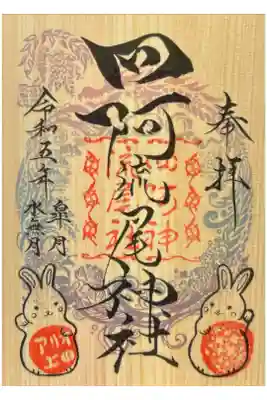 奉拝
四阿尾神社
令和五年
皐月
水無月
アリオ
上田